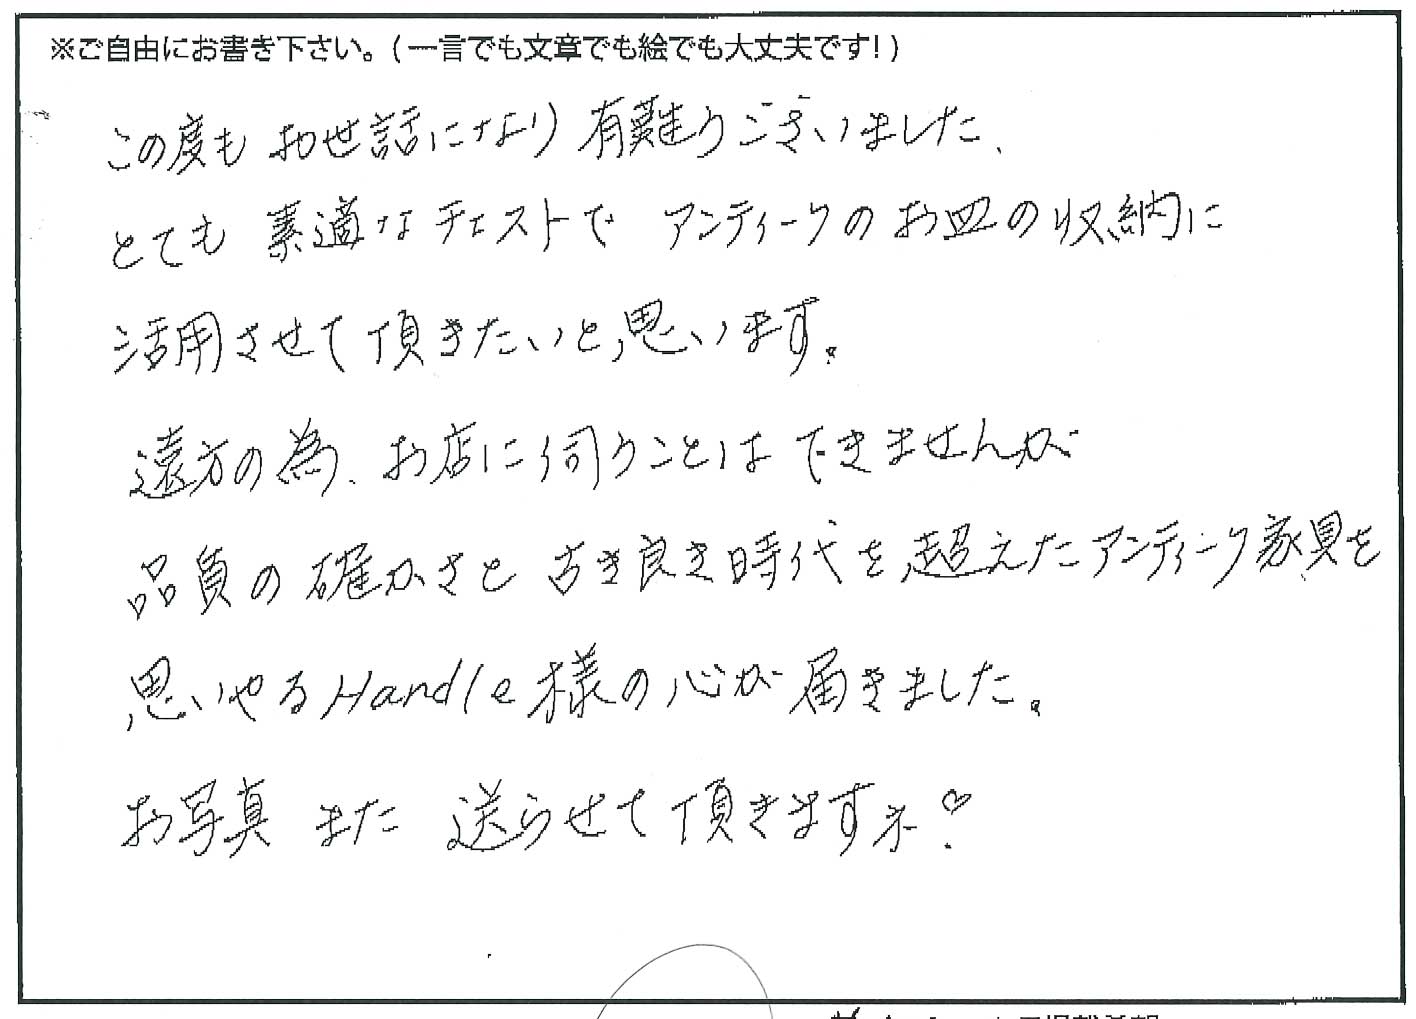 ※ご自由にお書き下さい。(一言でも文章でも絵でも大丈夫です!)
この度も お世話になり 有難うございました、
とても 素適なチェストで アンティークのお皿の収納に
活用させて頂きたいと思います。
遠方の為、お店に伺うことはできませんが
品質の確かさと 古き良き時代を超えたアンティーク家具を
思いやるHandle様の心が届きました。
お写真 また 送らせて頂きますネ♡